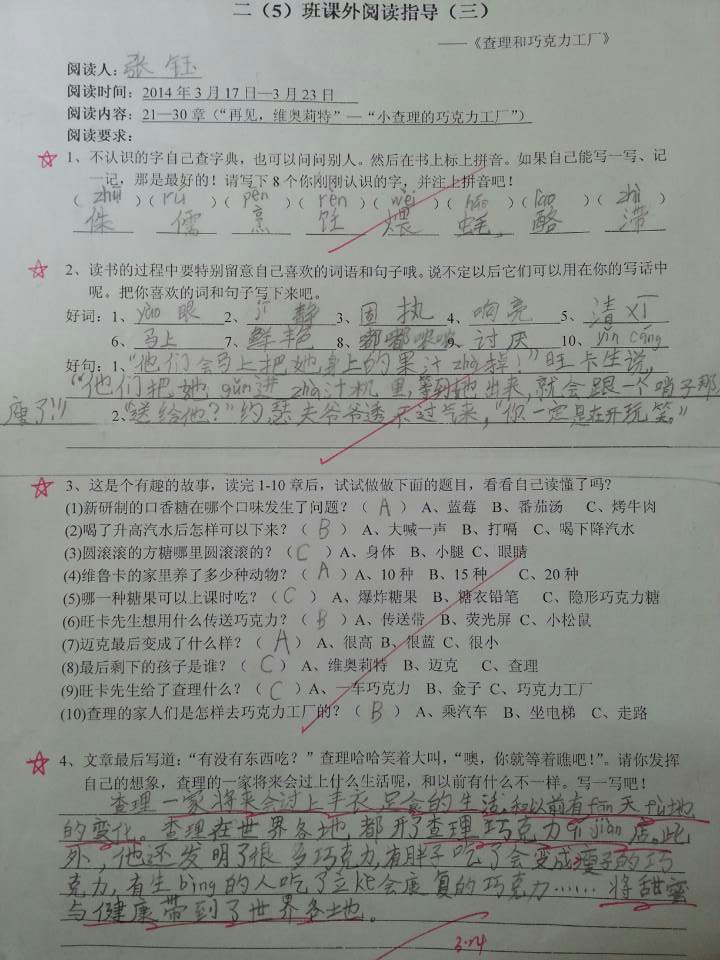 二（5）班课外阅读指导（三）
——《查理和巧克力工厂》
阅读人：张钰
阅读时间：2014年3月17日—3月23日
阅读内容：21—30章（“再见，维奥莉特”—“小查理的巧克力工厂”）
阅读要求：
1、不认识的字自己查字典，也可以问问别人。然后在书上标上拼音。如果自己能写一写、记
一记，那是最好的！请写下8个你刚刚认识的字，并注上拼音吧！
（zhū）（rú）（pēn）（rèn）（wēi）（háo）（lào）（zhì）
侏 儒 烹 饪 煨 蚝 酪 滞
2、读书的过程中要特别留意自己喜欢的词语和句子哦。说不定以后它们可以用在你的写话中
呢。把你喜欢的词和句子写下来吧。
好词：1、yào眼 2、jì静 3、固执 4、响亮 5、清
6、马上 7、鲜艳 8、嘟嘟 9、讨厌 10、yǐn cáng
好句：1、“他们会马上把她身上的果汁zhà掉！”旺卡生说，
“他们把她gǔn进zhà汁机里，等到她出来，就会跟一个哨子那
瘦了!!
2、“送给他？”约瑟夫爷爷透不过气来，“你一定是在开玩笑。”
3、这是个有趣的故事，读完1-10章后，试试做做下面的题目，看看自己读懂了吗？
(1)新研制的口香糖在哪个口味发生了问题？（A）A、蓝莓 B、番茄汤 C、烤牛肉
(2)喝了升高汽水后怎样可以下来？（B）A、大喊一声 B、打嗝 C、喝下降汽水
(3)圆滚滚的方糖哪里圆滚滚的？（C）A、身体 B、小腿 C、眼睛
(4)维鲁卡的家里养了多少种动物？（A）A、10种 B、15种 C、20种
(5)哪一种糖果可以上课时吃？（C）A、爆炸糖果 B、糖衣铅笔 C、隐形巧克力糖
(6)旺卡先生想用什么传送巧克力？（B）A、传送带 B、荧光屏 C、小松鼠
(7)迈克最后变成了什么样？（A）A、很高 B、很蓝 C、很小
(8)最后剩下的孩子是谁？（C）A、维奥莉特 B、迈克 C、查理
(9)旺卡先生给了查理什么？（C）A、一车巧克力 B、金子 C、巧克力工厂
(10)查理的家人们是怎样去巧克力工厂的？（B）A、乘汽车 B、坐电梯 C、走路
4、文章最后写道：“有没有东西吃？”查理哈哈笑着大叫，“噢，你就等着瞧吧！”。请你发挥
自己的想象，查理的一家将来会过上什么生活呢，和以前有什么不一样。写一写吧！
查理一家将来会过上丰衣足食的生活，和以前有fān天fù地
的变化。查理在世界各地都开了查理巧克力qí jiàn店。此
外，他还发明了很多巧克力，有胖子吃了会变成瘦子的巧
克力，有生bìng的人吃了立kè会康复的巧克力……将甜蜜
与健康带到了世界各地。
3.24